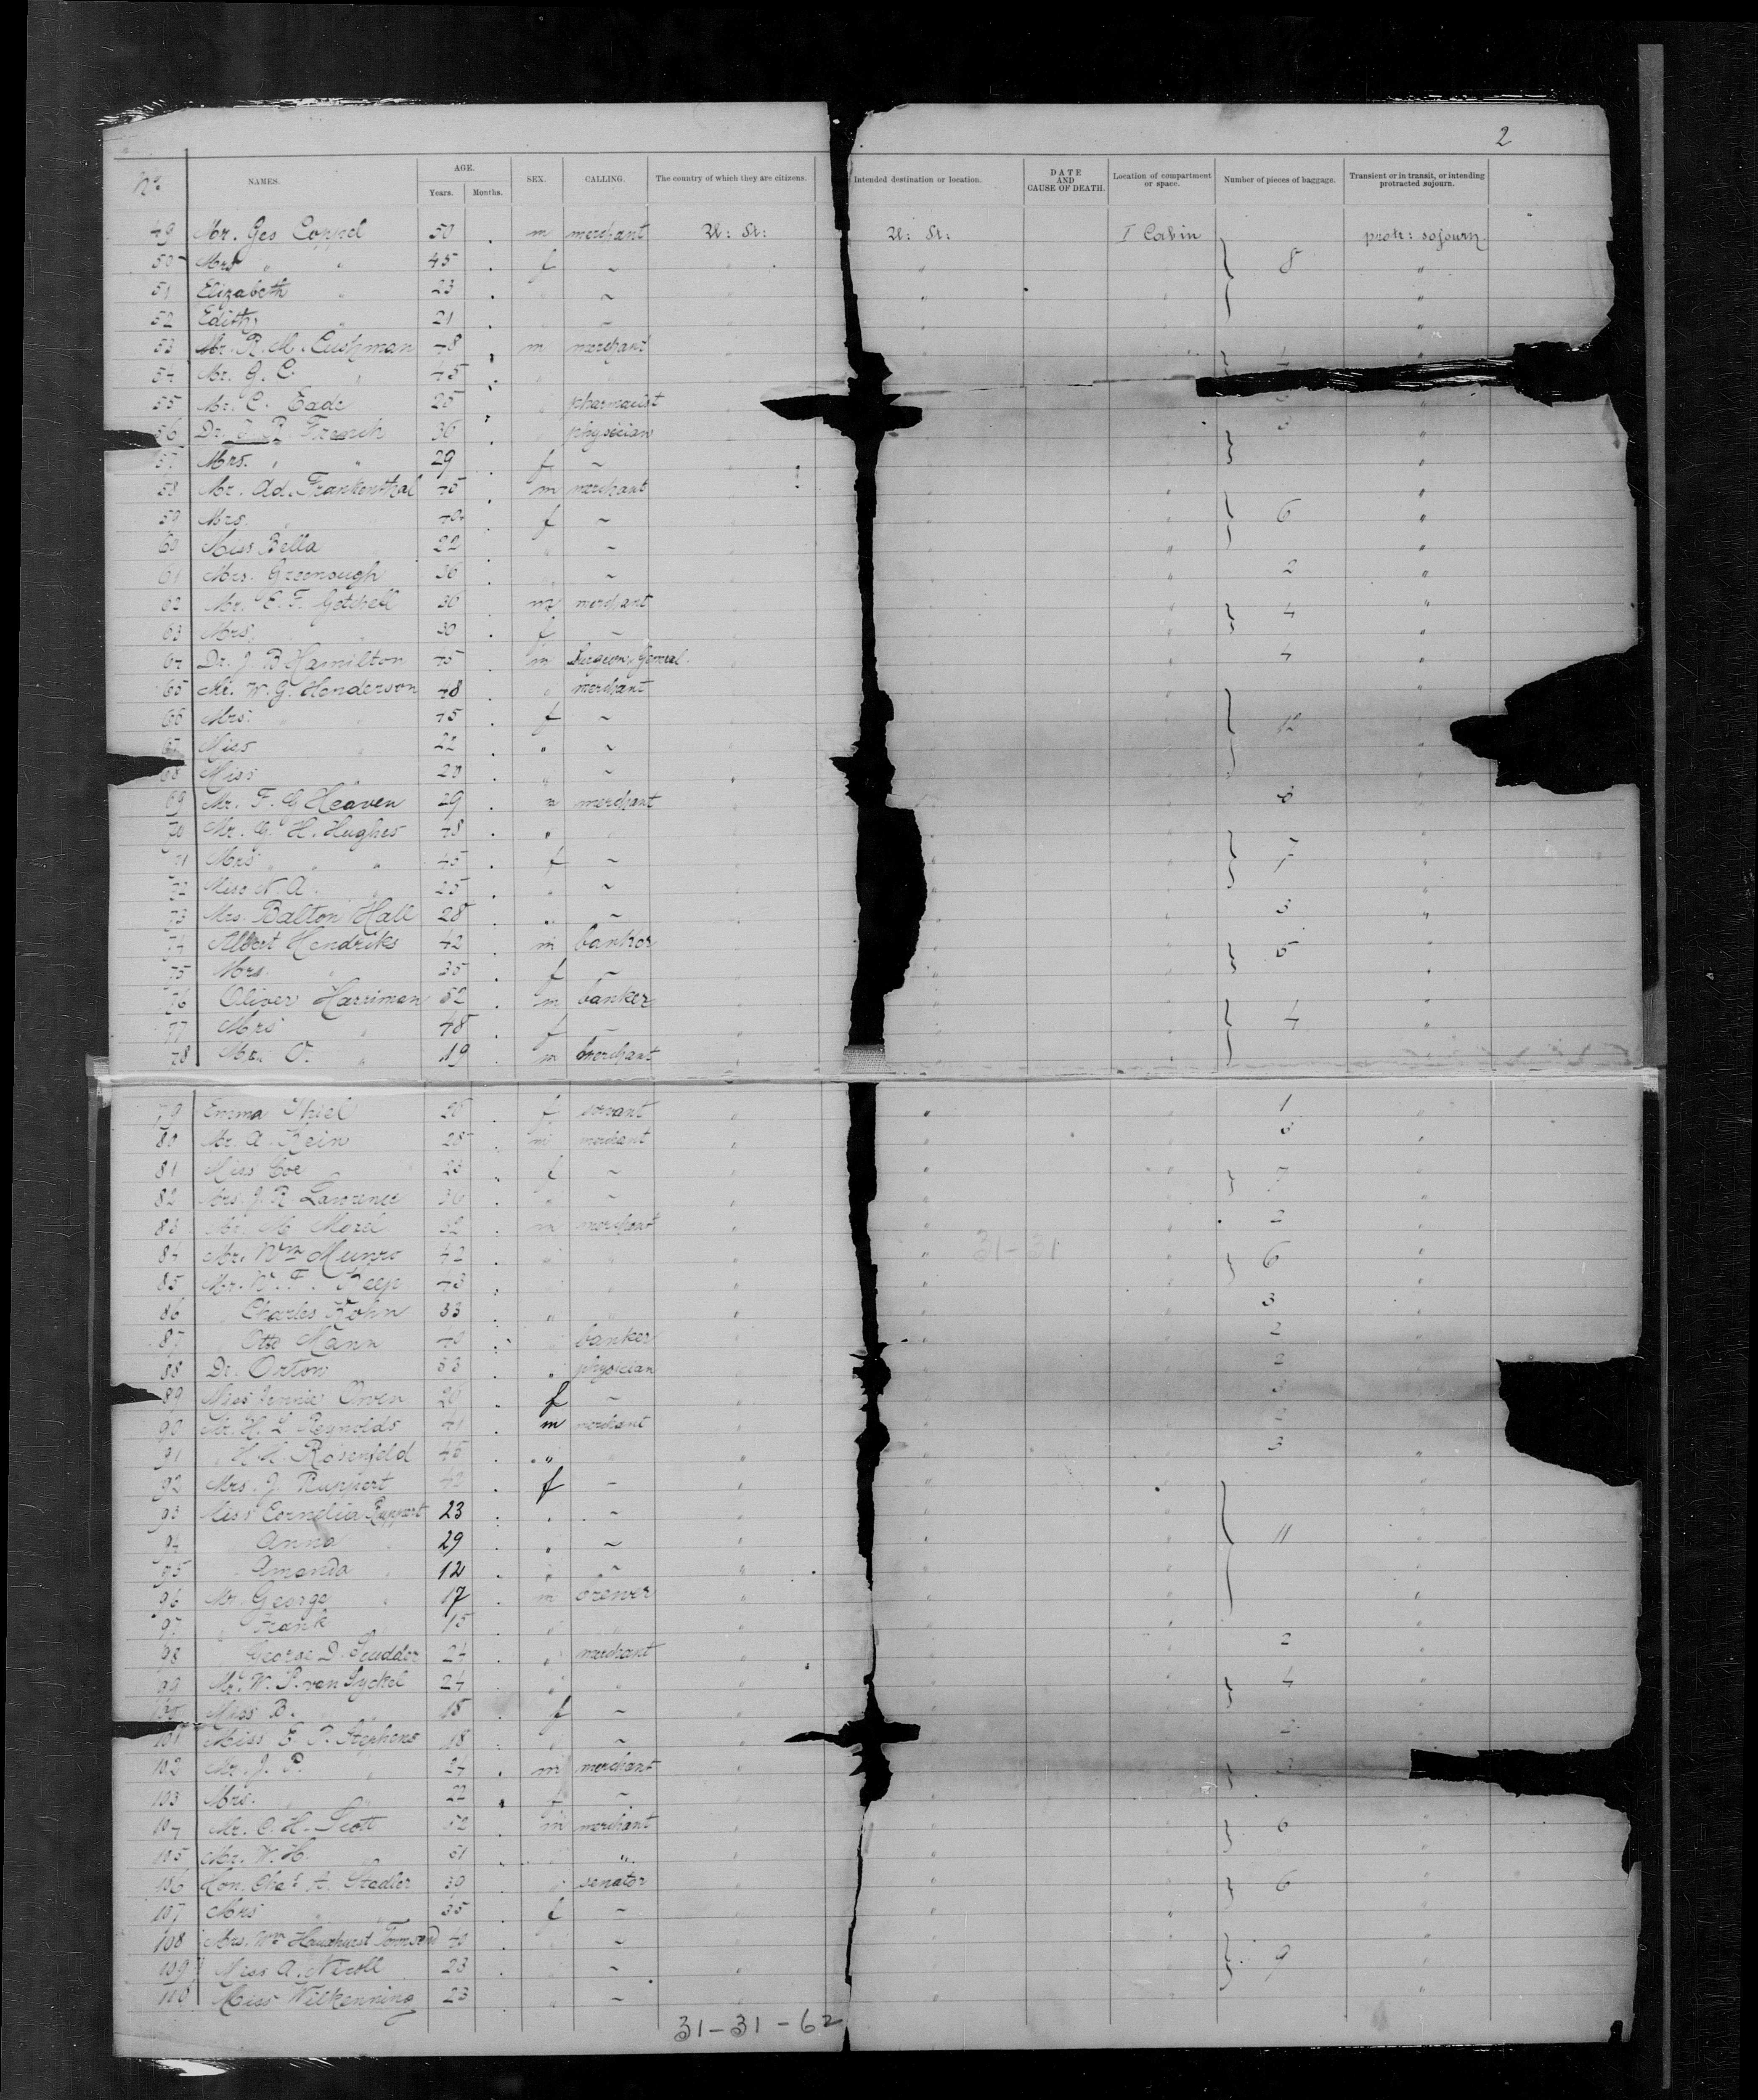 2
No. NAMES. AGE. Years. Months. SEX. CALLING. The country of which they are citizens. Intended destination or location. DATE AND CAUSE OF DEATH. Location of compartment or space. Number of pieces of baggage. Transient or in transit, or intending protracted sojourn.
49 Mr. Geo Coppel 50 m merchant U: St: U: St: I Cabin protr: sojourn
50 Mrs " " 45 f ~ " 8 "
51 Elizabeth " 23 ~ " "
52 Edith " 21 ~ " "
53 Mr. R. M. Cushman 48 m merchant "
54 Mr. G. C. " 45
55 Mr. C. Eade 25 pharmacist "
56 Dr. French 36 physician 3 "
57 Mrs. " " 29 f ~ "
58 Mr. Ad. Frankenthal 45 m merchant "
59 Mrs. f ~ 6 "
60 Miss Bella 22 ~ "
61 Mrs. Greenough 36 ~ 2 "
62 Mr. E. F. Getchell 36 m merchant 4 "
63 Mrs. " 30 f ~ "
64 Dr. J. B Hamilton 45 m Surgeon General 4 "
65 Mr. W. G. Henderson 48 " merchant "
66 Mrs. " " 45 f ~ 12
67 Miss " 22 " ~ "
68 Miss " ~
69 Mr. F. G Heaven 29 m merchant
70 Mr. G. H. Hughes 48 " "
71 Mrs " " 45 f ~ 7 "
72 Miss N. A. " 25 " ~ "
73 Mrs. Balton Hall 28 " ~ 3 "
74 Albert Hendriks 42 m banker 5 "
75 Mrs. " 35 f ~ "
76 Oliver Harriman 52 m banker "
77 Mrs " 48 f ~ 4 "
78 Mr. O. " 19 m merchant
79 Emma Thiel f servant " " 1 "
80 Mr. A. Kein 28 m merchant " " 3 "
81 Miss Coe f ~ " " 7 "
82 Mrs. J. R Lawrence 36 " ~ " "
83 Mr. M. Morel 32 m merchant " " 2 "
84 Mr. Wm Munro 42 " " " 31-31 6 "
85 Mr. W. F. Keep 43 " "
86 " Charles Kohn 33 " " " " 3 "
87 " Otto Mann 40 " banker " 2 "
88 Dr. Orton 53 " physician " 2
89 Miss Jennie Owen f ~ " 3
90 Mr. H. L Reynolds 41 m merchant " 2
91 " Rosenfeld 45 " " " " 3 "
92 Mrs. J. Ruppert 42 f - " " "
93 Miss Cornelia Ruppert 23 " ~ " " "
94 " Anna " 29 " ~ " " 11 "
95 " Amanda " 12 " ~ " " "
96 Mr. George " 17 m brewer " " "
97 " Frank " 15 " " " "
98 " George D. Scudder 24 " merchant " " 2 "
99 Mr. W. P. van Syckel 24 " " " " 4 "
100 Miss B. " 18 f ~ " " "
101 Miss E. P. Stephens 18 " ~ " 2 "
102 Mr. J. P. " 24 m merchant " 3
103 Mrs. " " 22 f ~ "
104 Mr. C. H. Scott 52 m merchant " " 6 "
105 Mr. W. H. 51 " " "
106 Hon. Chas A. Stadler 39 " senator " 6 "
107 Mrs " 35 f ~ " "
108 Mrs. Wm Hauxhurst Townsend 40 ~ "
109 Miss A. Nicoll 23 ~ " 9 "
110 Miss Wilkenning 23 " ~ " "
31-31-62